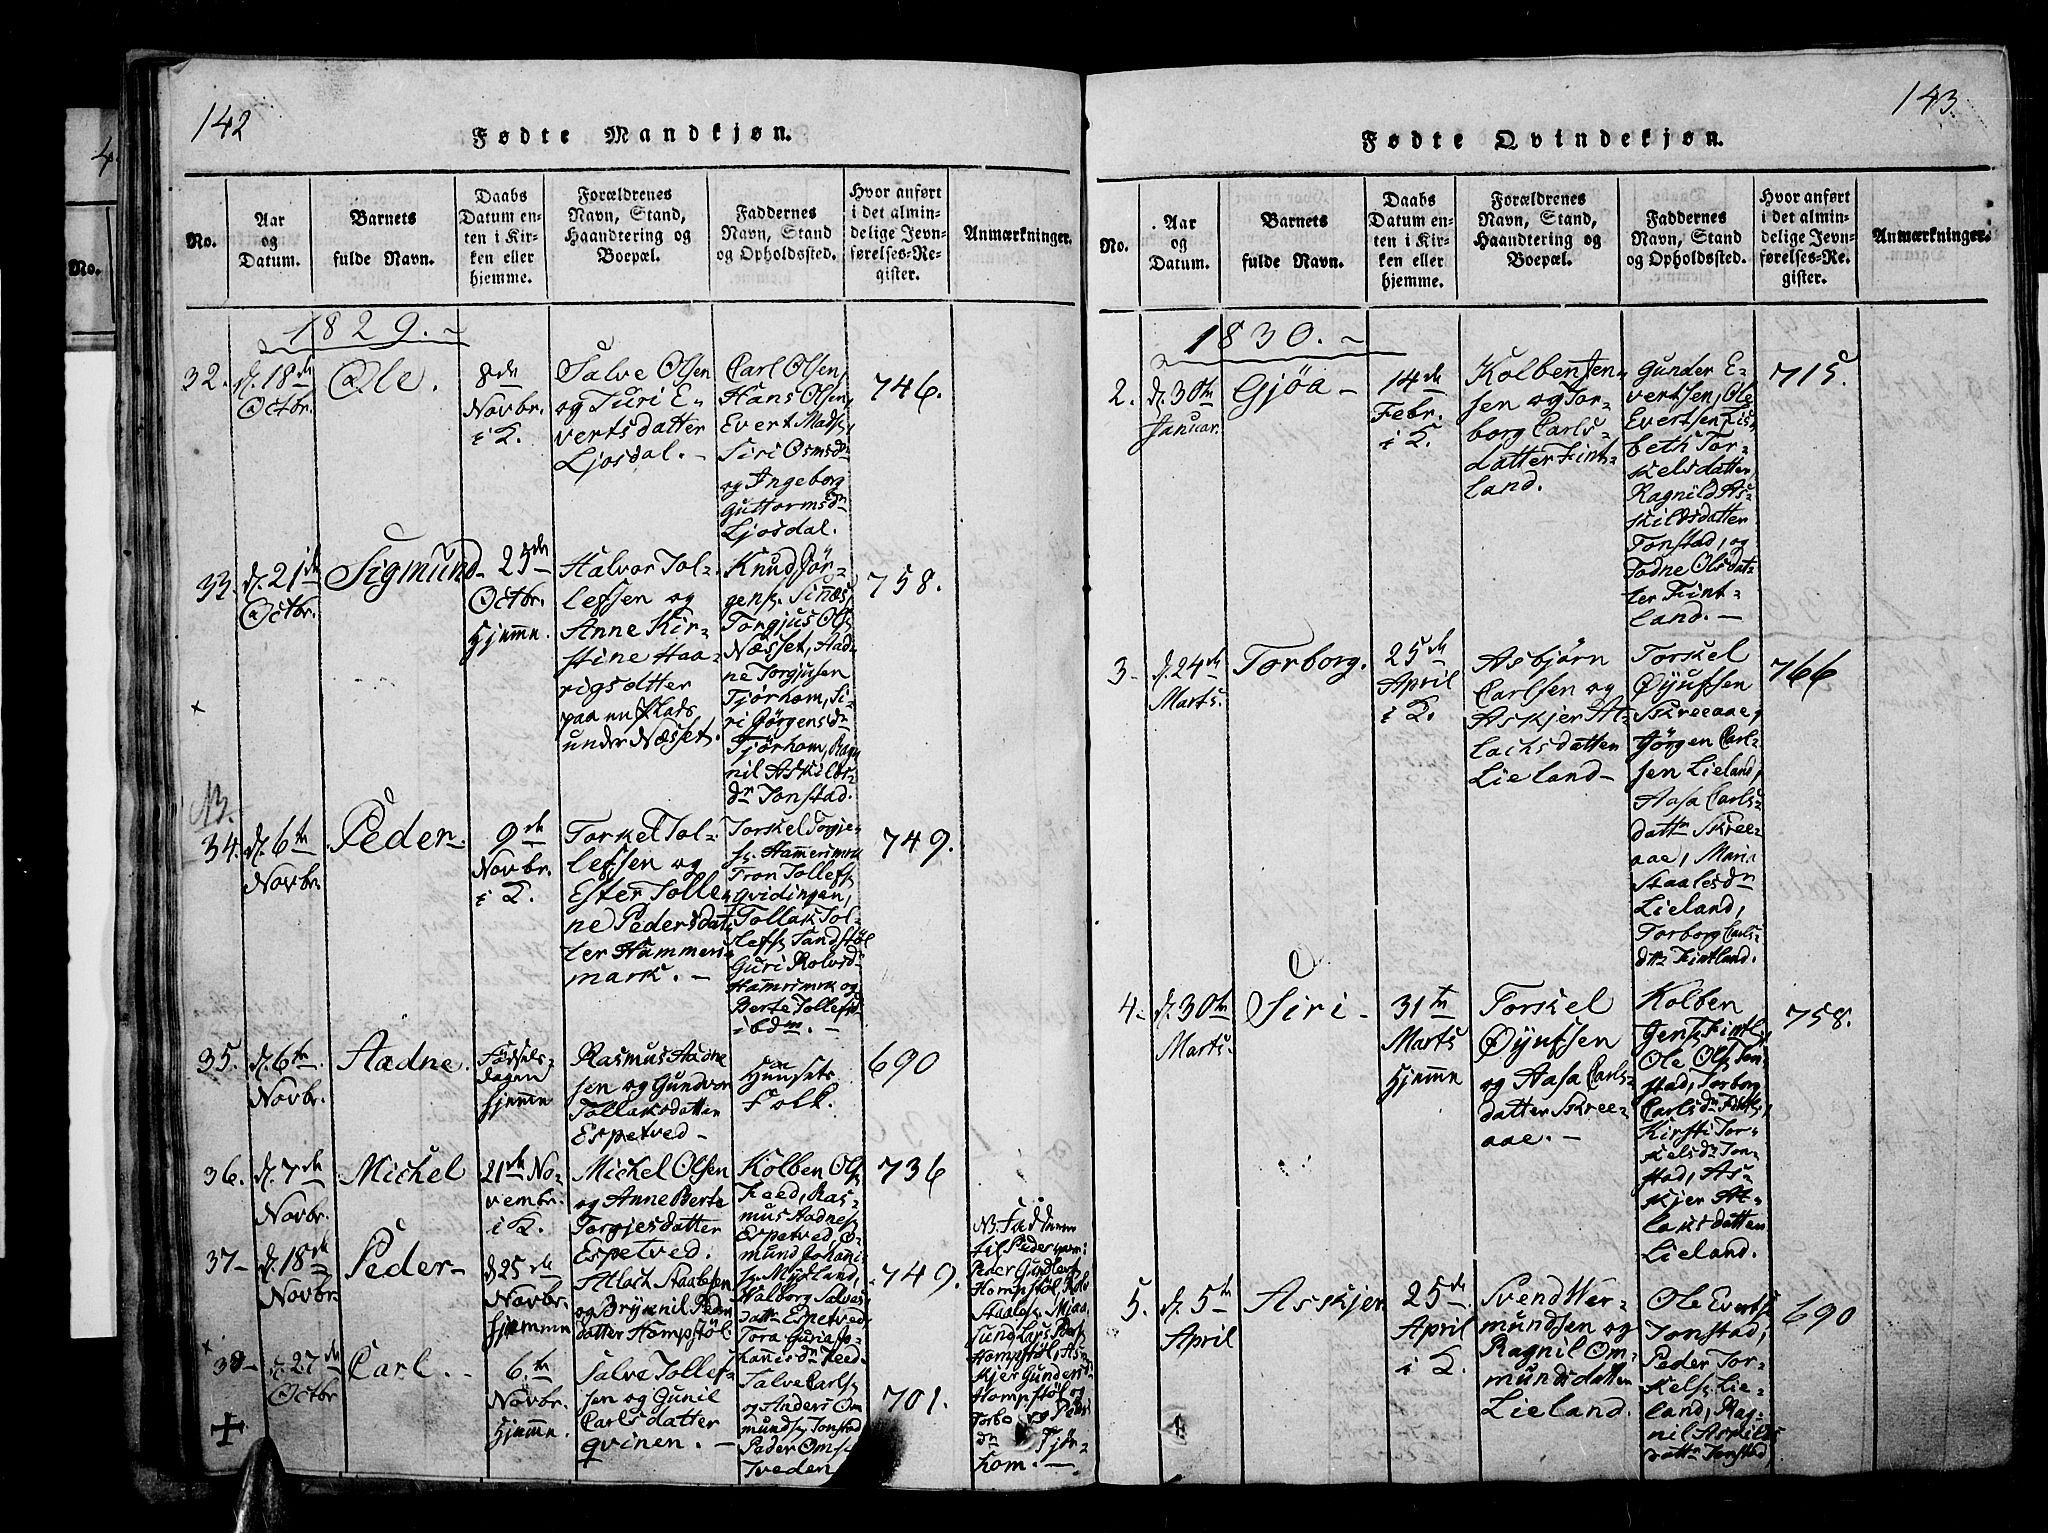 142
Fødte Mandkjøn.
No.
Aar
og
Datum.
Barnets
fulde Navn.
Daabs
Datum en-
ten i Kir-
ken eller
hjemme.
Forældrenes
Navn, Stand,
Haandtering og
Boepæl.
Faddernes
Navn, Stand
og Opholdssted.
Hvor anført
i det almin-
delige Jevn-
førelses-Re-
gister.
Anmærkninger.
1829.
32.
d. 18de
Octbr.
Ole.
8de
Novbr.
i K.
Salve Olsen
og Turi E-
vertsdatter
Ljosdal. -
Carl Olsen,
Hans Olsen,
Evert Mads,
Siri Osmsdr
og Ingeborg
Guttormsdr
Ljosdal.
746.
33.
d. 21de
Octbr.
Sigmund
25de
Octbr.
Hjemme.
Halvor Tol-
lefsen og
Anne Kir-
stine Haa-
rigsdtter
paa en Plads
under Næsset.
Knud Jör-
gens. Sinæs,
Torgjus Ols
Næsset, Aad-
ne Torgjusen
Tjørhom, Si-
ri Görgensdr
Tjørhom, Rag-
nil Askilds-
dr Tonstad.
758.
NB.
34.
d. 6te
Novbr.
Peder
9de
Novbr.
i K.
Torkel Tol-
lefsen og
Ester Tolle
ne Pedersdat-
ter Hammeri-
mark. -
Torkel Torgje-
s. Hamerimrk
Tron Tollefs
Gvidingen,
Tollak Tol-
lefs Tandstöl
Guri Rolvsd-
Hamrimrk og
Berte Tollefsd
ibdm. -
749.
35.
d. 6te
Novbr.
Aadne.
Fødsels-
dagen
hjemme
Rasmus Aadne
sen og Gundvor
Tollaksdatter
Espetved -
Huusets
Folk.
690
36.
d. 7de
Novbr.
Michel
21de No-
vembr.
i K.
Michel Olsen
og Anne Berte
Torgjesdatter
Espetved.
Kolben Ols
Feed, Ras-
mus Aadnes
Espetved, O-
mund Johani-
s. Mydland,
Walborg Salves-
dattr Espetved
Tora Guria Jo-
hannisdr Feed.
736
37-
d. 18de
Novbr.
Peder-
d 25de
Novbr.
hjemme
Atlach Staalesen
og Brynnil Peder
datter Hompstöl
749.
NB. Faddere
til Peder vare:
Peder Gundlefs
Hompstöl, Rolv
Staales. Mjaa,
Hompstöl, As-
kjer Gundersd-
Hompstöl og
dr Tjör-
hom. -
38-
d. 27de
Octbr
Carl. -
6.te
Novbr.
Hjemme.
Salve Tollef-
sen og Gunil
Carlsdatter
Qvinen. -
Salve Carls
og Anders Om-
munds Tonstad
Peder Oms
Tveden
701.
143.
Fødte Qvindekjøn.
No.
Aar
og
Datum.
Barnets
fulde Navn.
Daabs
Datum en-
ten i Kir-
ken eller
hjemme.
Forældrenes
Navn, Stand,
Haandtering og
Boepæl.
Faddernes
Navn, Stand
og Opholdssted.
Hvor anført
i det almin-
delige Jevn-
førelses-Re-
gister.
Anmærkninger.
1830. -
2.
d. 30te
Januar.
Gjøa -
14de
Febr.
i K.
Kolben Jen-
sen og Tor-
borg Carls-
datter Fint-
land.
Gunder E-
vertsen, Ole
Evertsen, Lis-
beth Tor-
kelsdatter,
Ragnild As-
kildsdatter
Tonstad, og
Todne Olsdat-
ter Fint-
land. -
715.
3-
d. 24de
Marts.
Torborg.
25de
April
i K.
Asbjörn
Carlsen og
Askjer At-
lachsdatter
Lieland-
Torkel
Øyufsen
Skreeaae,
Görgen Carl-
sen Lieland,
Aasa Carls-
dattr Skree-
aae, Maria
Staalesdr
Lieland,
Torborg Carls-
dtr Fintland.
766
4-
d. 30te
Marts.
Siri-
31te
Marts
Hjemme
Torkel
Øyufsen
og Aasa Carls-
datter Skree-
aae. -
Kolben
Jens. Fintl,
Ole Ols. Ton-
stad, Torborg
Carlsdr Fintl,
Kirsti Tor-
kelsdr Ton-
stad, As-
kjer At-
laksdatter
Lieland.
758.
5.
d. 5te
April
Askjer
25de
April
i K.
Svend Wer-
mundsen og
Ragnil Om-
mundsdatter
Lieland.
Ole Everts
Tonstad,
Peder Tor-
kels. Lie-
land, Rag-
nil Askilds
dattr Tonstad,
690